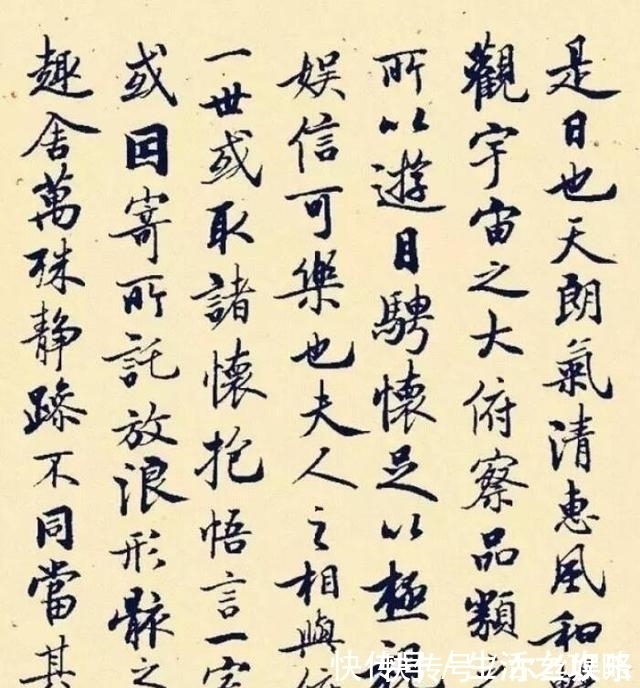 是日也天朗氣清惠風和
觀宇宙之大俯察品類
所以遊目騁懷足以極視
娱信可樂也夫人之相與
一世或取諸懷抱悟言一室
或因寄所託放浪形骸之
趣舍萬殊静躁不同當其